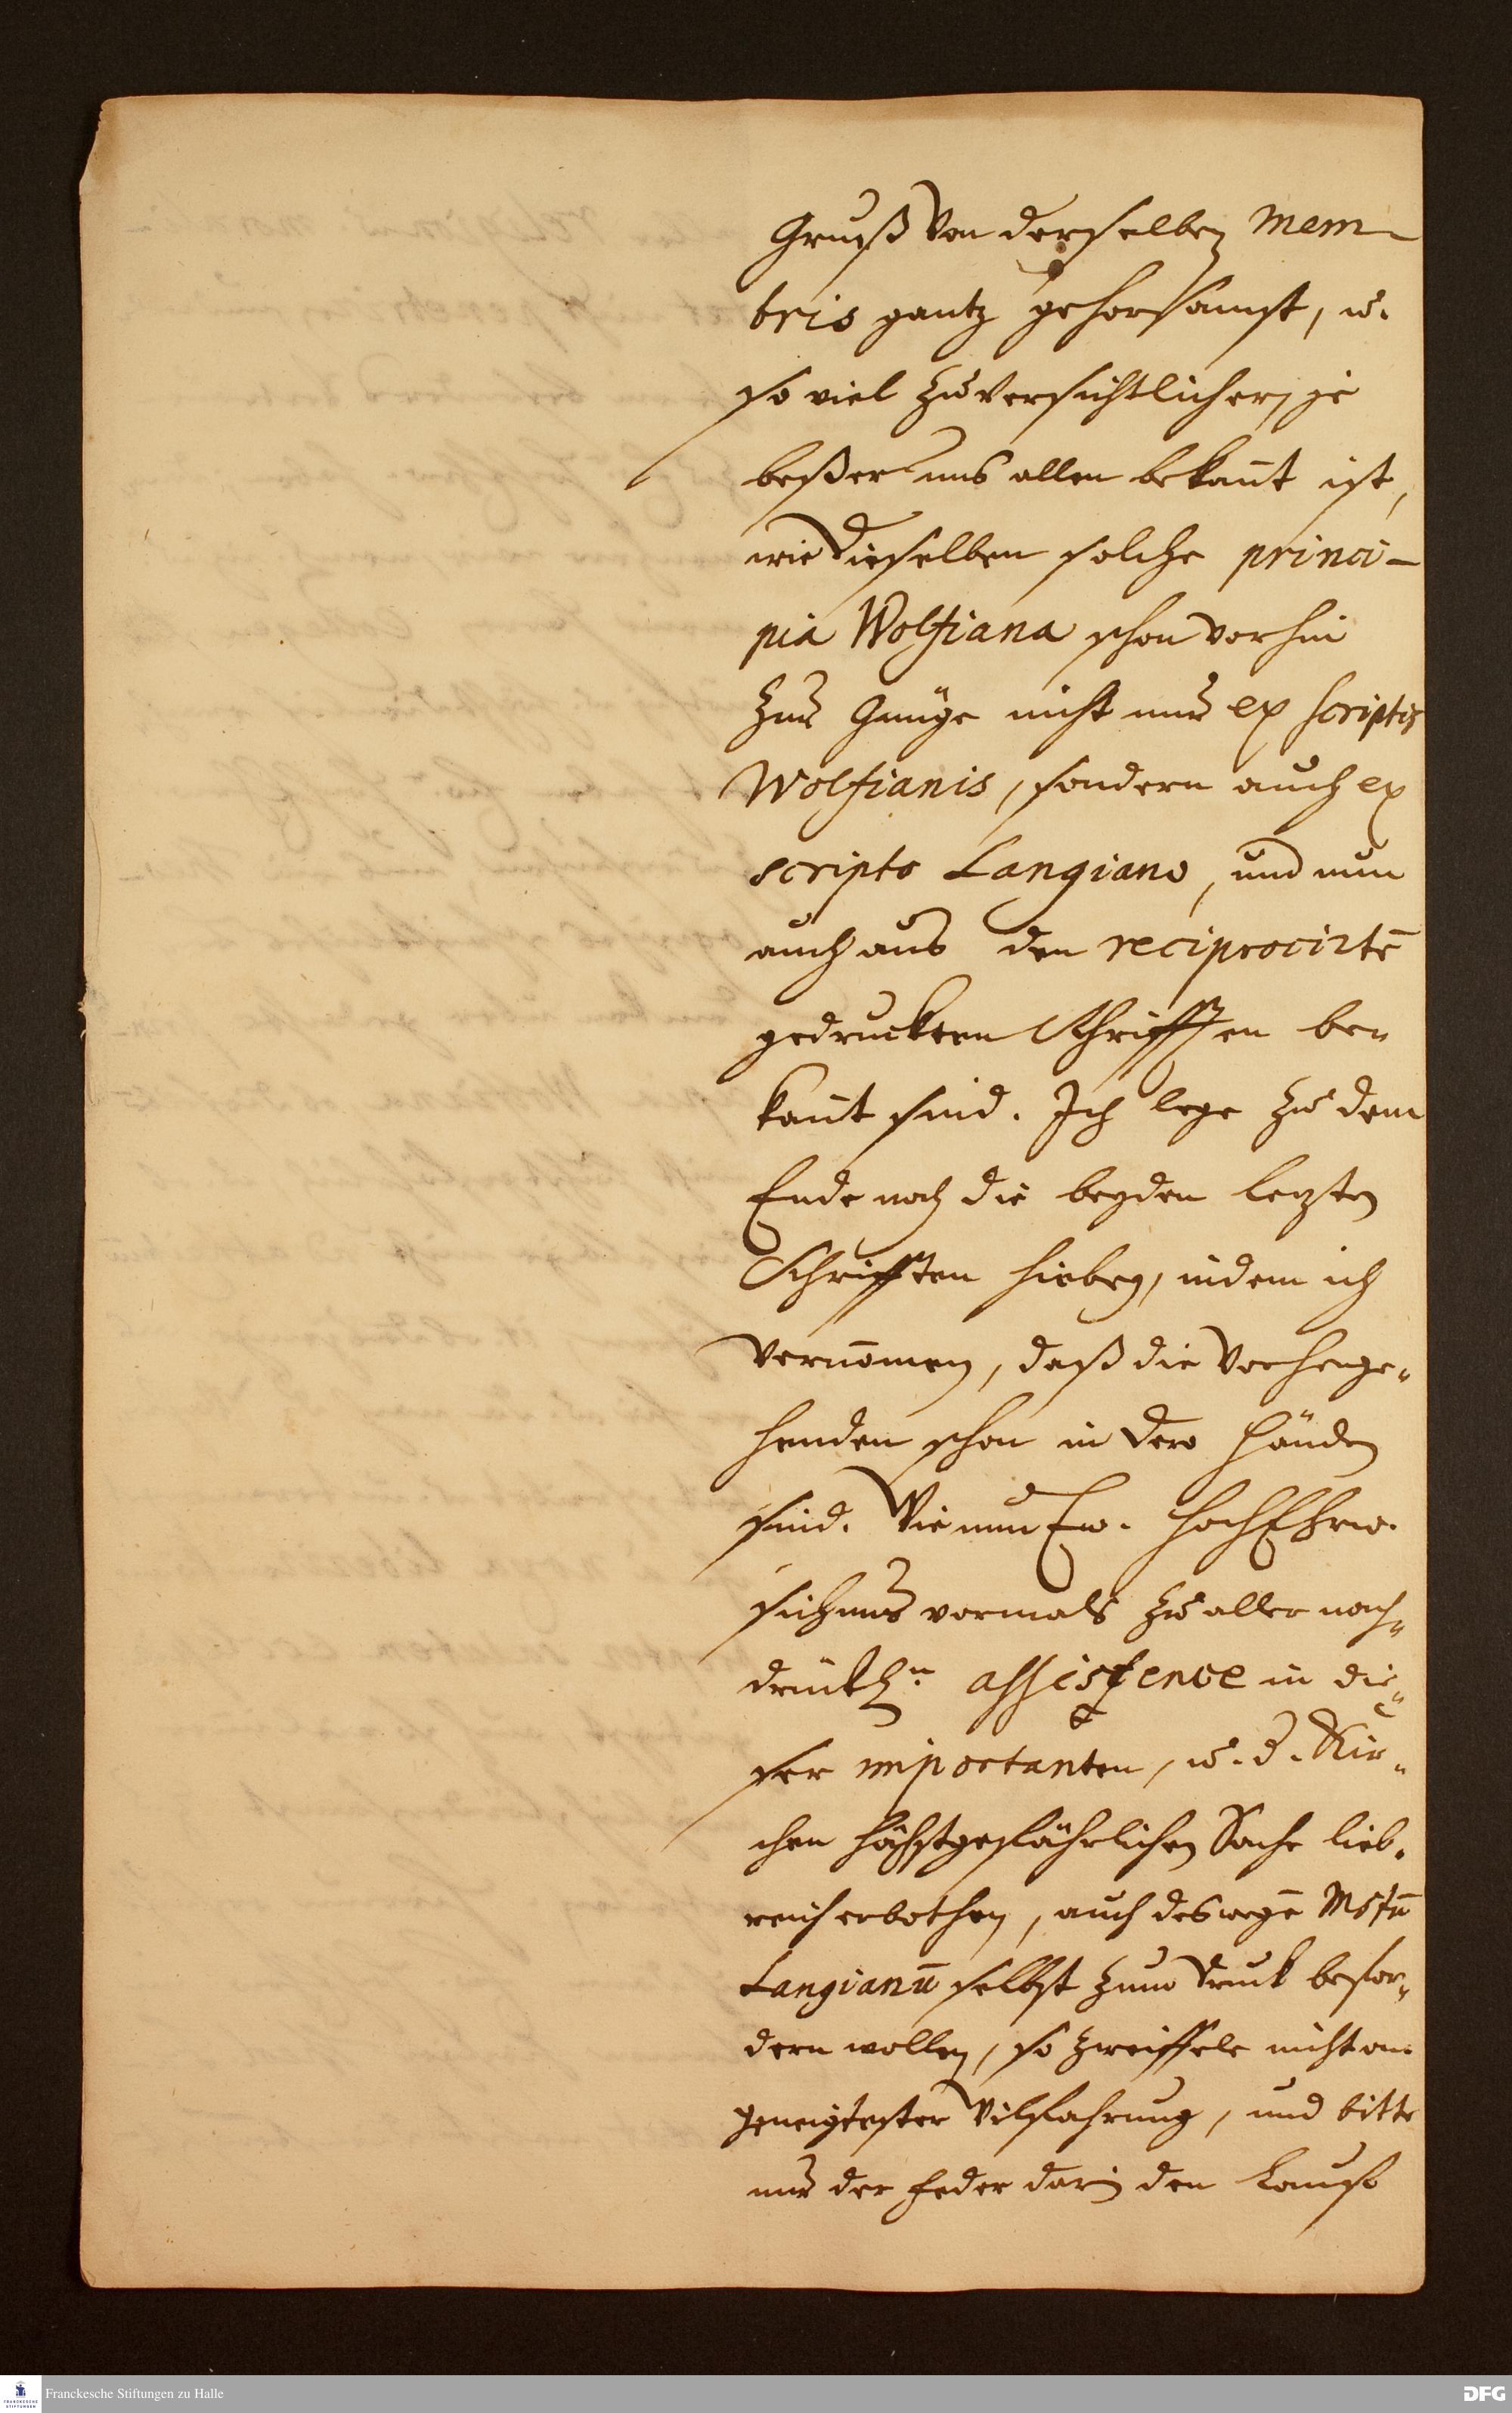 Gruß von derselben Mem-
bris gantz gehorsamst, u.
so viel zuversichtlicher, je
beßer uns allen bekañt ist,
wie dieselben solche princi-
pia Wolfiana schon vorhin
zur Gnüge nicht nur ex scriptis
Wolfianis, sondern auch ex
scripto Langiano, und nun
auch aus den reciprocirtẽ
gedruckten Schrifften be-
kañt sind. Ich lege zu dem
Ende noch die beyden letzten
Schrifften hiebey, indem ich
vernom̃en, daß die vorherge-
henden schon in dero Händen
sind. Wie nun Ew. HochEhrw.
sich uns vormals zu aller nach-
drückl.n assistence in die-
ser importanten, u. d. Kir-
chen höchstgefährlichen Sache lieb-
reich erbothen, auch deswegẽ Mstũ
Langianũ selbst zum Druck befor-
dern wollen, so zweiffele nicht an
geneigtester Wilfahrung, und bitte
nur der Feder darin den Lauff
Franckesche Stiftungen zu Halle
DFG